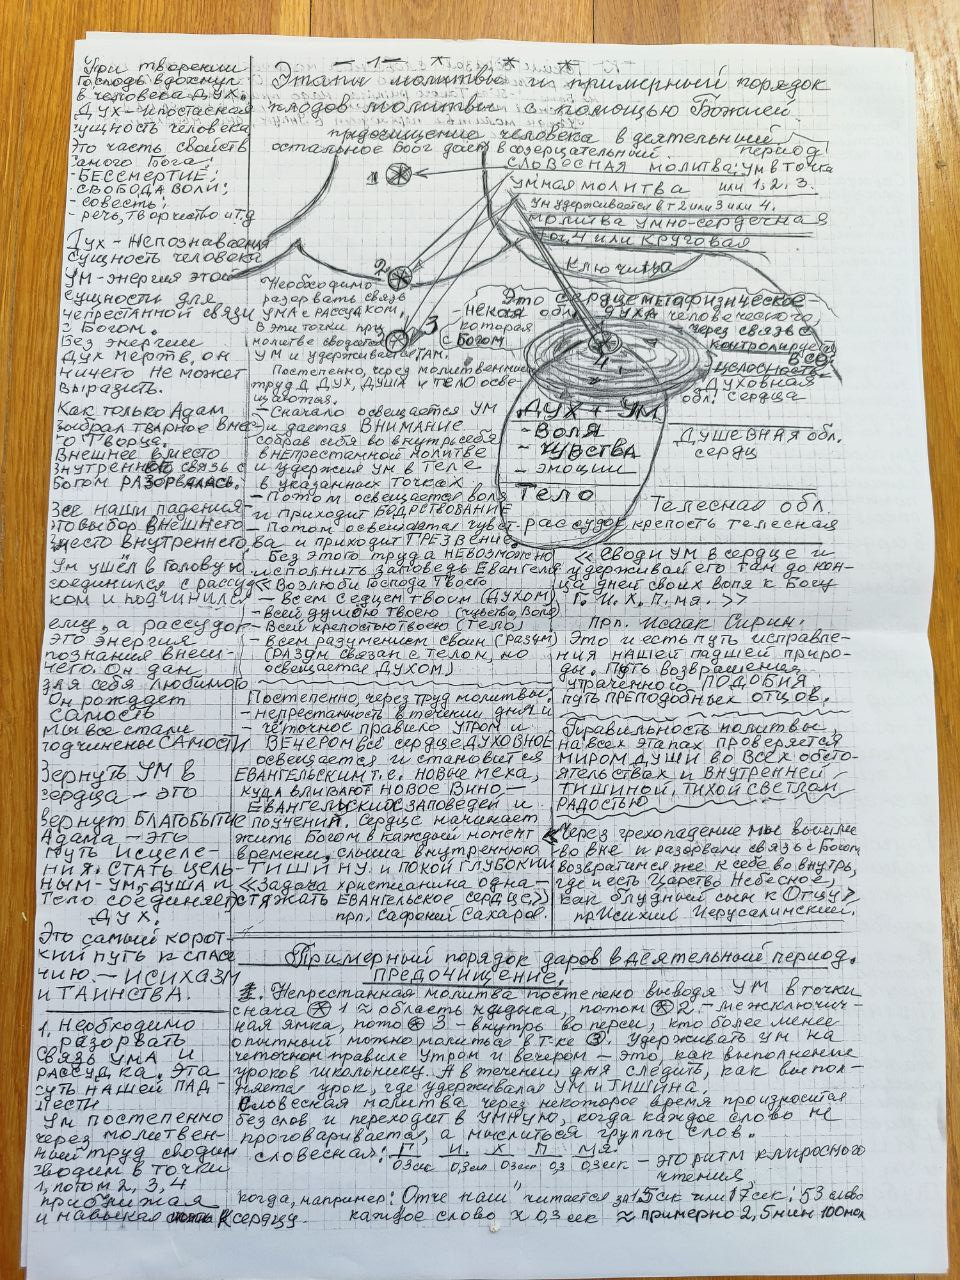 - 1 -
Этапы молитвы и примерный порядок
плодов молитвы с помощью Божией.
предочищение человека в деятельный
период
остальное Бог даёт в созерцательный
При творении
Господь вдохнул
в человека ДУХ.
ДУХ - ипостасная
сущность человека
Это часть свойств
самого Бога:
- БЕССМЕРТИЕ;
- СВОБОДА ВОЛИ;
- совесть;
- речь, творчество и т.д
Дух - Непознаваемая
сущность человека
Ум - энергия этой
сущности для
непрестанной связи
с Богом.
Без энергии
Дух мертв, он
ничего не может
выразить.
Как только Адам
выбрал тварное вместо
Творца.
Внешнее вместо
внутреннего связь с
Богом РАЗОРВАЛАСЬ.
Все наши падения -
это выбор внешнего
вместо внутреннего
Ум ушёл в Голову и
соединился с рассуд-
ком и подчинился
ему, а рассудок
это энергия
познания внеш-
него. Он дан
для себя любимого
Он рождает
самость
мы все стали
подчинены САМОСТИ
Вернуть УМ в
сердца - это
вернут БЛАГОБЫТИЕ
Адама - это
путь исцеле-
ния. Стать цель-
ным - ум, душа и
тело соединяет
ДУХ.
Это самый корот-
кий путь к спасе-
нию. - ИСИХАЗМ
и ТАИНСТВА.
1. Необходимо
разорвать
связь ума и
рассудка. Эта
суть нашей пад-
шести
Ум постепенно
через молитвен-
ный труд сводим
сводим в точки
1, потом 2, 3, 4
приближая
и навыкая к сердцу
СЛОВЕСНАЯ молитва: УМ в точка
или 1, 2, 3.
умная молитва
Ум удерживается в т 2 или 3 или 4.
молитва умно-сердечная
точ. 4 или круговая
1
2
3
4
ключица
Необходимо
разорвать связь
УМА с рассудком,
В эти точки при
молитве сводится
УМ и удерживается ТАМ.
Это сердце метафизическое
- некая обл. ДУХА человеческого,
которая через связь с
с Богом контролирует
всю
целосность
Духовная
обл. сердца
ДУХ + УМ
- ВОЛЯ
- ЧУВСТВА
- эмоции
Тело
Душевная обл.
сердц
Телесная обл.
рассудок крепость телесная
Постепенно, через молитвенный
труд Д ДУХ, ДУША и ТЕЛО осве-
щаются.
- Сначало освещается УМ
и дается ВНИМАНИЕ
собрав себя во внутрь себя
в непрестанной молитве
и удержия ум в теле
в указанных точках
- Потом освещается воля
и приходит БОДРСТВОВАНИЕ
- Потом освещается чувст-
ва и приходит ТРЕЗВЕНИЕ
Без этого труда НЕВОЗМОЖНО
исполнить заповедь Евангела
« Возлюби Господа Твоего
- Всем седцем твоим (ДУХОМ)
- всей душою Твоею (чувства, Воля)
- Всей крепостью твоею (ТЕЛО)
- всем разумением своим (разум)
(РАЗУМ связан с Телом, но
освещается ДУХОМ)
Постепенно, через Труд молитвы:
- непрестанность в течении дня и
- чёточное правило утром и
ВЕЧЕРОМ всё сердце ДУХОВНОЕ
освещается и становится
ЕВАНГЕЛЬСКИМ т.е. новые меха,
куда вливают новое вино -
Евангельских заповедей и
поучений. Сердце начинает
жить Богом в каждый момент
времени, слыша внутреннюю
ТИШИНУ. и ПОКОЙ ГЛУБОКИЙ
« Задача христианина одна -
стяжать Евангельское сердце.»
прп. Софроний Сахаров.
« Своди УМ в сердце и
удерживай его там до кон-
ца дней своих вопя к Богу
Г. И. Х. П. мя. >>
Прп. Исаак Сирин.
Это и есть путь исправле-
ния нашей падшей приро-
ды. Путь возвращения
утраченного ПОДОБИЯ
путь ПРЕПОДОБНЫХ отцов.
Правильность молитвы
на всех этапах проверяется
МИРОМ ДУШИ во всех обсто-
ятельствах и внутренней
тишиной, тихой светлой
радостью
« Через грехопадение мы вышли
во вне и разорвали связь с Богом
возвратимся же к себе во внутрь,
где и есть Царство Небесное,
как блудный сын к Отцу»
пр Исихий Иерусалимский.
Примерный порядок даров в деятельный период.
предочищение.
1. Непрестанная молитва постепено выводя УМ в точки
снача 1 ≈ область кадыка, потом 2 - межключич-
ная ямка, пото 3 - внутрь во перси, кто более менее
опытный можно молиться в т-ке 3. Удерживать ум на
чёточном правиле утром и вечером - это, как выполнение
уроков школьнику. А в течении дня следить, как выпол-
няется урок, где удерживался УМ и ТИШИНА
Словесная молитва через некоторое время произносится
без слов и переходит в УМНУЮ, когда каждое слово не
проговаривается, а мыслиться группы слов.
словесная: Г И. Х П МЯ. - это ритм клиросного
0,3 сек 0,3 сек 0,3 сек 0,3 0,3 сек чтения
когда, например: "Отче наш" читается за 15 сек или 17 сек: 53 слово
каждое слово х 0,3 сек ≈ примерно 2,5 мин 100 мол